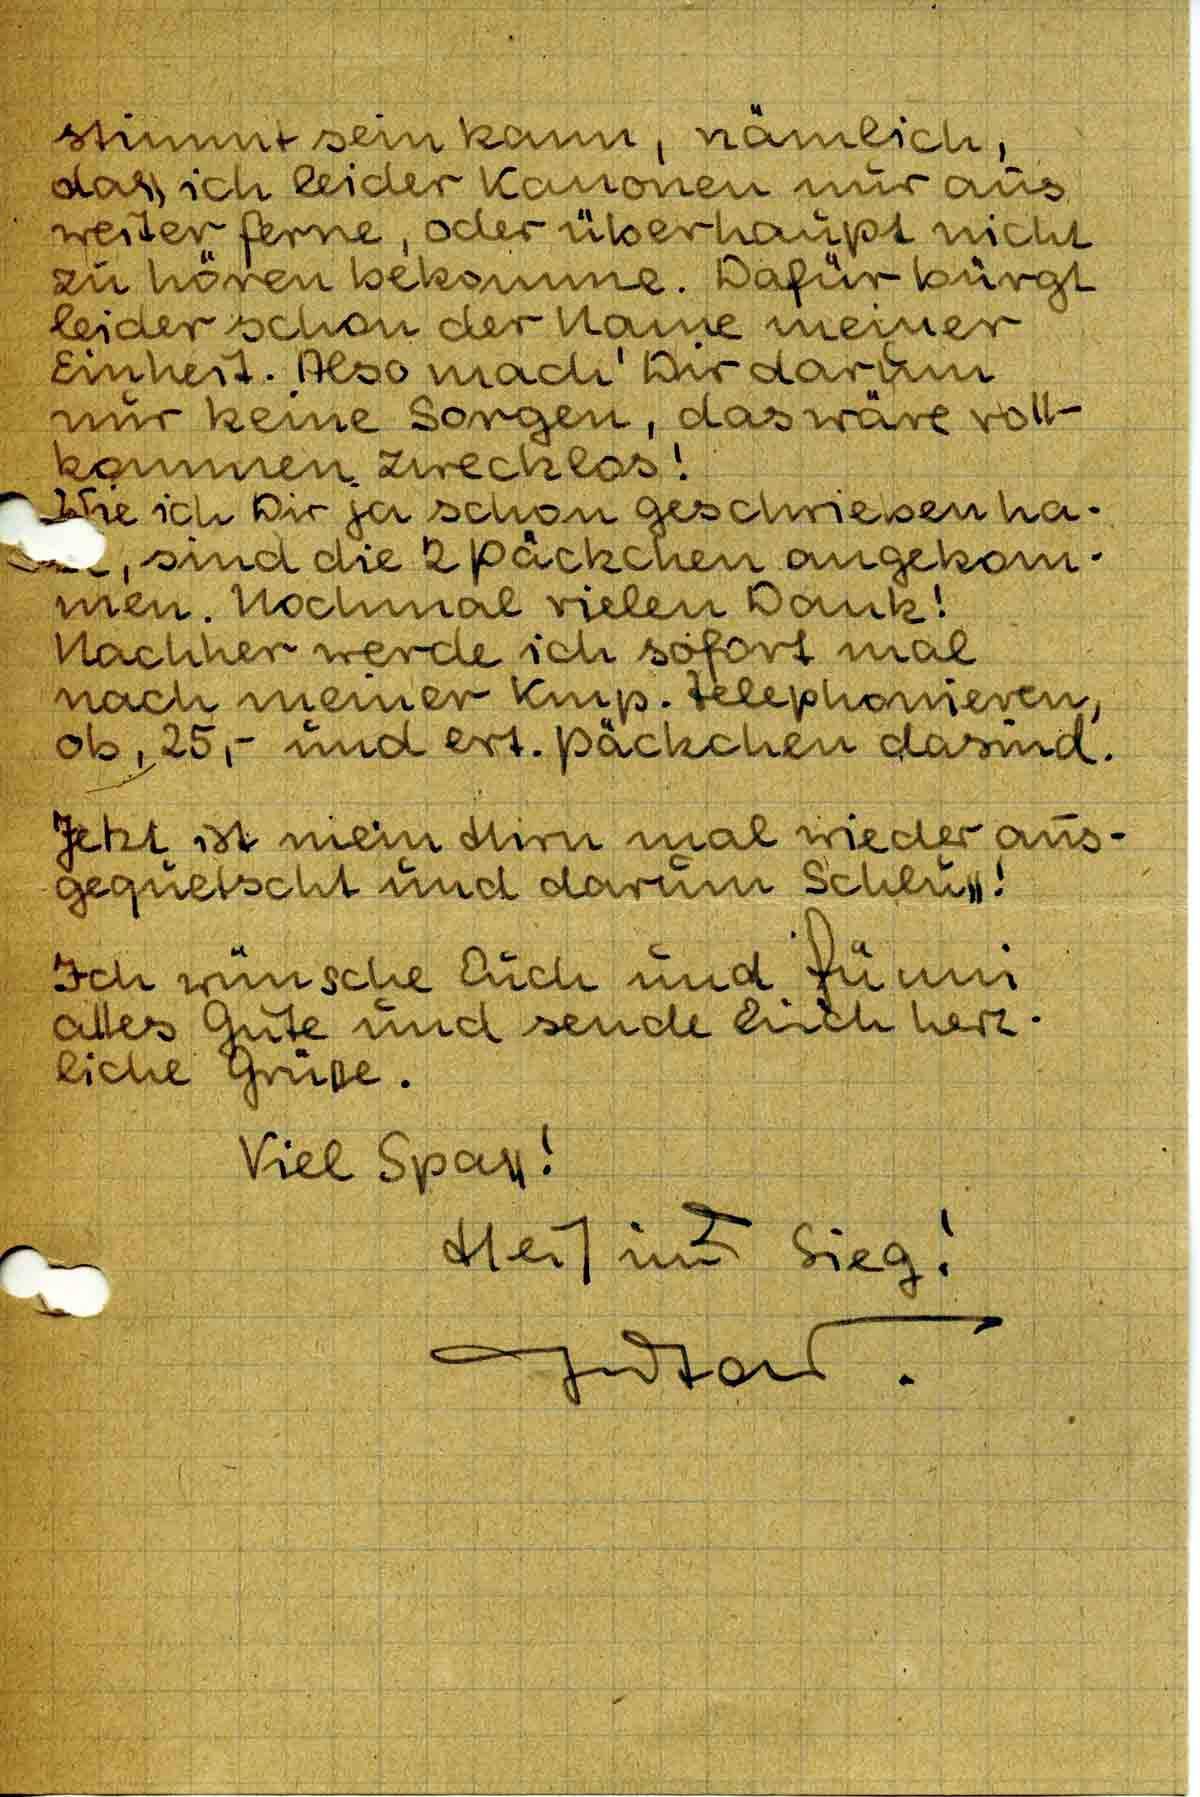 stimmt sein kann, nämlich,
daß ich leider Kanonen nur aus
weiter ferne, oder überhaupt nicht
zu hören bekomme. Dafür bürgt
leider schon der Name meiner
Einheit. Also mach' Dir darum
nur keine Sorgen, das wäre voll-
kommen zwecklos!
Wie ich Dir ja schon geschrieben ha-
, sind die 2 Päckchen angekom-
men. Nochmal vielen Dank!
Nachher werde ich sofort mal
nach meiner Kmp. telephonieren,
ob, 25,- und evt. Päckchen da sind.
Jetzt ist mein Hirn mal wieder aus-
gequetscht und darum Schluß!
Ich wünsche Euch und
alles Gute und sende Euch herz-
liche Grüße.
Viel Spaß!
Heil und Sieg!